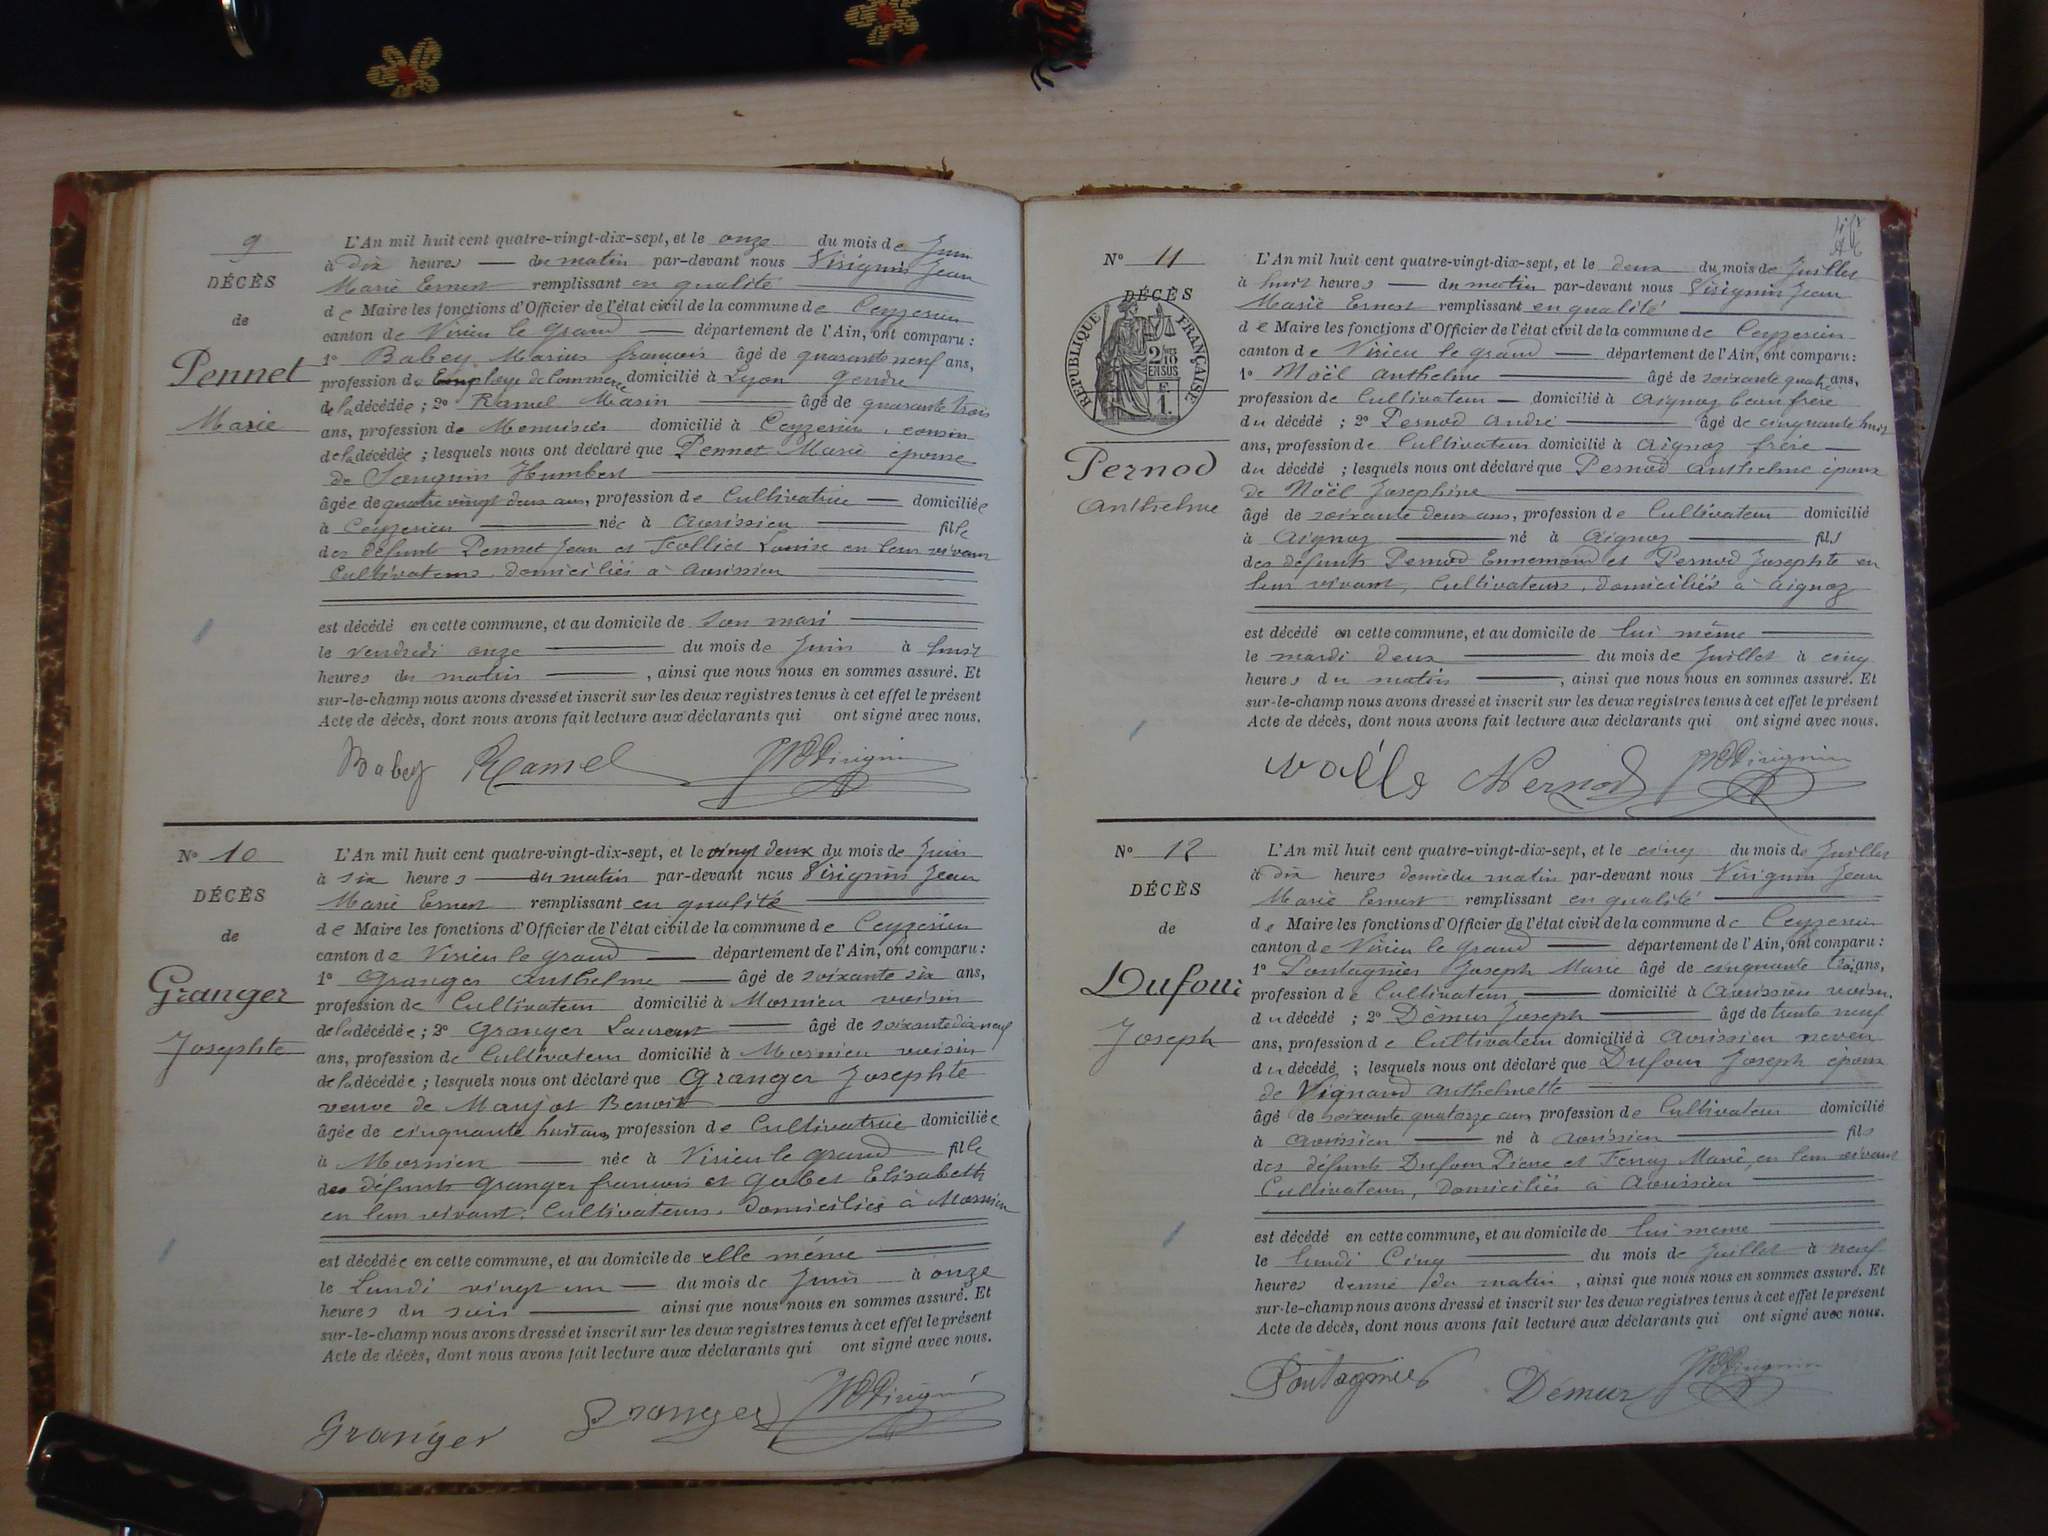 9
DÉCÈS
de
Pennet
Marie
L'An mil huit cent quatre-vingt-dix-sept, et le onze du mois de Juin
à dix heures du matin par-devant nous Virignin Jean
Marie Ernest remplissant en qualité
de Maire les fonctions d'Officier de l'état civil de la commune de Ceyzerieu
canton de Virieu le grand département de l'Ain, ont comparu :
1° Babey Marius françois âgé de quarante neuf ans,
profession de Employé de Commerce domicilié à Lyon gendre
de la décédée ; 2° Ramel Marin âgé de quarante trois
ans, profession de Menuisier domicilié à Ceyzerieu, cousin
de la décédée ; lesquels nous ont déclaré que Pennet Marie épouse
de Sanguin Humbert
âgée de quatre vingt deux ans, profession de Cultivatrice domiciliée
à Ceyzerieu née à Avrissieu fille
des défunts Pennet Jean et Louise en leur vivant
Cultivateurs, domiciliés à Avrissieu
est décédé en cette commune, et au domicile de son mari
le vendredi onze du mois de Juin à huit
heures du matin , ainsi que nous nous en sommes assuré. Et
sur-le-champ nous avons dressé et inscrit sur les deux registres tenus à cet effet le présent
Acte de décès, dont nous avons fait lecture aux déclarants qui ont signé avec nous.
Babey Ramel Virignin
N° 10
DÉCÈS
de
Granger
Josephte
L'An mil huit cent quatre-vingt-dix-sept, et le vingt deux du mois de Juin
à six heures du matin par-devant nous Virignin Jean
Marie Ernest remplissant en qualité
de Maire les fonctions d'Officier de l'état civil de la commune de Ceyzerieu
canton de Virieu le grand département de l'Ain, ont comparu :
1° Granger Anthelme âgé de soixante six ans,
profession de Cultivateur domicilié à Mornieu voisin
de la décédée ; 2° Granger Laurent âgé de soixante dix neuf
ans, profession de Cultivateur domicilié à Mornieu voisin
de la décédée ; lesquels nous ont déclaré que Granger Josephte
veuve de Maujot Benoit
âgée de cinquante huit ans profession de Cultivatrice domiciliée
à Mornieu née à Virieu le grand fille
des défunts Granger francois et Gobet Elisabeth
en leur vivant, Cultivateurs, Domiciliés à Mornieu
est décédée en cette commune, et au domicile de elle même
le Lundi vingt un du mois de Juin à onze
heures du soir ainsi que nous nous en sommes assuré. Et
sur-le-champ nous avons dressé et inscrit sur les deux registres tenus à cet effet le présent
Acte de décès, dont nous avons fait lecture aux déclarants qui ont signé avec nous.
Granger Granger Virignin
N° 11
DÉCÈS
RÉPUBLIQUE FRANÇAISE
2/10 EN SUS
F.
1.
Pernod
Anthelme
L'An mil huit cent quatre-vingt-dix-sept, et le deux du mois de Juillet
à huit heures du matin par-devant nous Virignin Jean
Marie Ernest remplissant en qualité
de Maire les fonctions d'Officier de l'état civil de la commune de Ceyzerieu
canton de Virieu le grand département de l'Ain, ont comparu :
1° Noël Anthelme âgé de soixante quatre ans,
profession de Cultivateur domicilié à Aignoz beau frère
du décédé ; 2° Pernod André âgé de cinquante huit
ans, profession de Cultivateur domicilié à Aignoz frère
du décédé ; lesquels nous ont déclaré que Pernod Anthelme époux
de Noël Josephine
âgé de soixante deux ans, profession de Cultivateur domicilié
à Aignoz né à Aignoz fils
des défunts Pernod Ennemond et Pernod Josephte en
leur vivant, Cultivateurs, domiciliés à Aignoz
est décédé en cette commune, et au domicile de lui même
le mardi deux du mois de Juillet à cinq
heures du matin , ainsi que nous nous en sommes assuré. Et
sur-le-champ nous avons dressé et inscrit sur les deux registres tenus à cet effet le présent
Acte de décès, dont nous avons fait lecture aux déclarants qui ont signé avec nous.
Pernod Virignin
N° 12
DÉCÈS
de
Dufour
Joseph
L'An mil huit cent quatre-vingt-dix-sept, et le cinq du mois de Juillet
à dix heures demie du matin par-devant nous Virignin Jean
Marie Ernest remplissant en qualité
de Maire les fonctions d'Officier de l'état civil de la commune de Ceyzerieu
canton de Virieu le grand département de l'Ain, ont comparu :
1° Pontagnier Joseph Marie âgé de cinquante trois ans,
profession de Cultivateur domicilié à Avrissieu voisin
du décédé ; 2° Demur Joseph âgé de trente neuf
ans, profession de Cultivateur domicilié à Avrissieu neveu
du décédé ; lesquels nous ont déclaré que Dufour Joseph époux
de Vignand Anthelmette
âgé de soixante quatorze ans profession de Cultivateur domicilié
à Avrissieu né à Avrissieu fils
des défunts Dufour Pierre et Ferraz Marie, en leur vivant
Cultivateurs, Domiciliés à Avrissieu
est décédé en cette commune, et au domicile de lui meme
le lundi Cinq du mois de Juillet à neuf
heures demie du matin , ainsi que nous nous en sommes assuré. Et
sur-le-champ nous avons dressé et inscrit sur les deux registres tenus à cet effet le présent
Acte de décès, dont nous avons fait lecture aux déclarants qui ont signé avec nous.
Pontagnier Démur Virignin